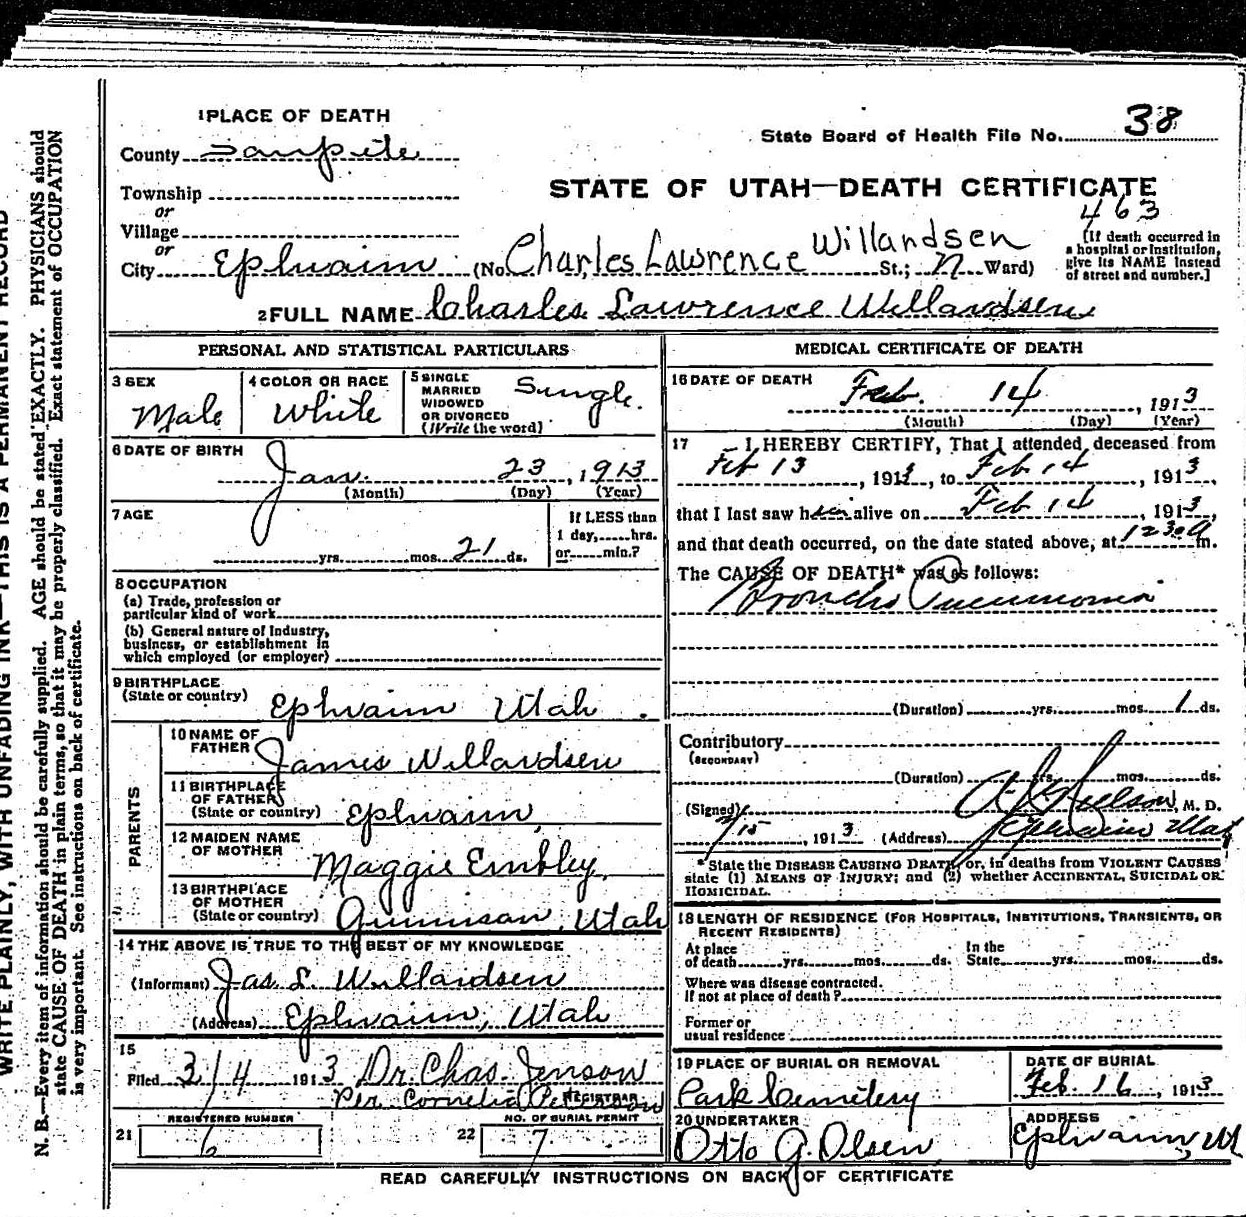 1 PLACE OF DEATH
County Sanpete
State Board of Health File No. 38
Township
or
Village
or
City Ephraim (No. Charles Lawrence Willardsen St.; N Ward)
STATE OF UTAH—DEATH CERTIFICATE
463
[If death occurred in
a hospital or institution,
give its NAME instead
of street and number.]
2 FULL NAME Charles Lawrence Willardsen
PERSONAL AND STATISTICAL PARTICULARS
3 SEX
Male
4 COLOR OR RACE
White
5 SINGLE
MARRIED
WIDOWED
OR DIVORCED
(Write the word)
Single.
6 DATE OF BIRTH
Jan. 23, 1913
(Month) (Day) (Year)
7 AGE
yrs. mos. 21 ds.
If LESS than
1 day, hrs.
or min.?
8 OCCUPATION
(a) Trade, profession or
particular kind of work
(b) General nature of Industry,
business, or establishment in
which employed (or employer)
9 BIRTHPLACE
(State or country) Ephraim Utah.
PARENTS
10 NAME OF
FATHER James Willardsen
11 BIRTHPLACE
OF FATHER
(State or country) Ephraim,
12 MAIDEN NAME
OF MOTHER Maggie Embley.
13 BIRTHPLACE
OF MOTHER
(State or country) Gunnison, Utah
14 THE ABOVE IS TRUE TO THE BEST OF MY KNOWLEDGE
(Informant) Jas. L. Willardsen
(Address) Ephraim, Utah
15
Filed 3/4 1913 Dr. Chas. Jenson
REGISTRAR
Per Cornelia
REGISTERED NUMBER
21 6
NO. OF BURIAL PERMIT
22 7
MEDICAL CERTIFICATE OF DEATH
16 DATE OF DEATH
Feb. 14, 1913
(Month) (Day) (Year)
17 I HEREBY CERTIFY, That I attended deceased from
Feb 13, 1913, to Feb 14, 1913,
that I last saw him alive on Feb 14, 1913,
and that death occurred, on the date stated above, at 12 30 a m.
The CAUSE OF DEATH* was as follows:
Broncho Pneumonia
(Duration) yrs. mos. 1 ds.
Contributory
(SECONDARY)
(Duration) yrs. mos. ds.
(Signed) Nielson, M. D.
2/15, 1913 (Address) Ephraim Utah
*State the DISEASE CAUSING DEATH, or, in deaths from VIOLENT CAUSES
state (1) MEANS OF INJURY; and (2) whether ACCIDENTAL, SUICIDAL OR
HOMICIDAL.
18 LENGTH OF RESIDENCE (FOR HOSPITALS, INSTITUTIONS, TRANSIENTS, OR
RECENT RESIDENTS)
At place
of death yrs. mos. ds.
In the
State yrs. mos. ds.
Where was disease contracted.
If not at place of death?
Former or
usual residence
19 PLACE OF BURIAL OR REMOVAL
Park Cemetery
DATE OF BURIAL
Feb. 16, 1913
20 UNDERTAKER
Otto G. Olsen
ADDRESS
Ephraim, Ut
READ CAREFULLY INSTRUCTIONS ON BACK OF CERTIFICATE
WRITE PLAINLY, WITH UNFADING INK—THIS IS A PERMANENT RECORD
N. B.—Every item of information should be carefully supplied. AGE should be stated EXACTLY. PHYSICIANS should
state CAUSE OF DEATH in plain terms, so that it may be properly classified. Exact statement of OCCUPATION
is very important. See instructions on back of certificate.